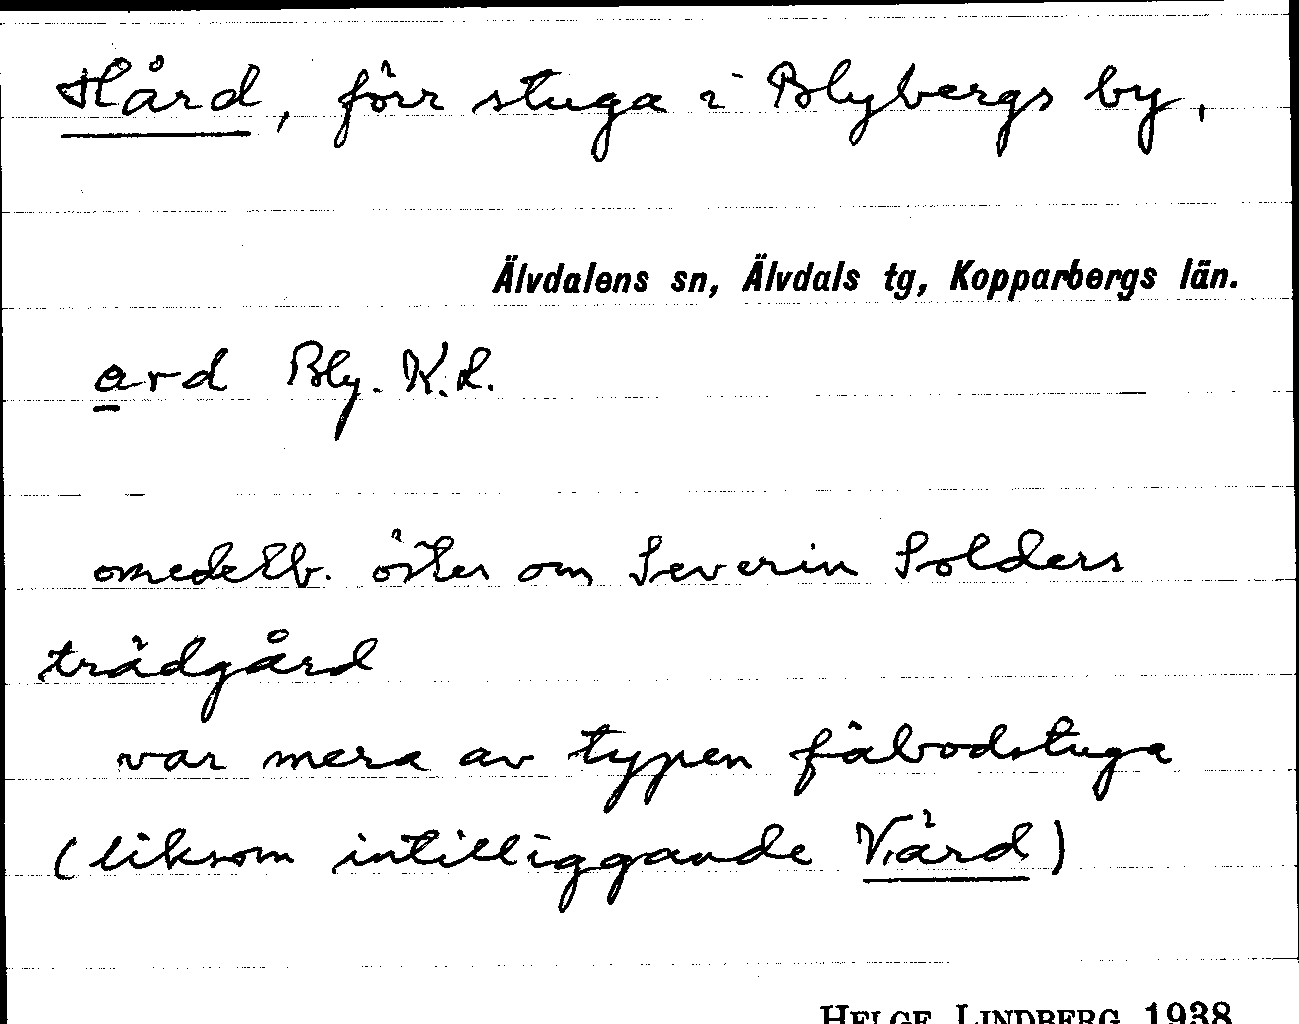 Hård, förr stuga i Blybergs by,
Älvdalens sn, Älvdals tg, Kopparbergs län.
ard Bly. K.L.
omedelb. öster om Severin Solders
trädgård
var mera av typen fäbodstuga
(liksom intilliggande Värd)
HELGE LINDBERG 1938